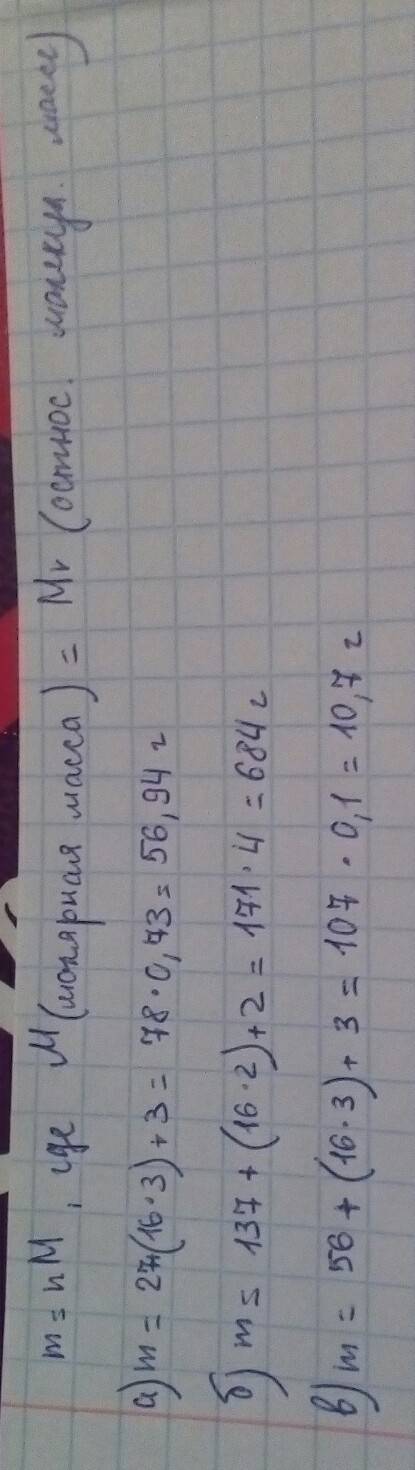 m = nM, где M (молярная масса) = Mr (остнос. молекул. массе)
а) m = 27+(16·3)+3 = 78·0,73 = 56,94 г
б) m = 137 + (16·2)+2 = 171·4 = 684 г
в) m = 56 + (16·3)+3 = 107·0,1 = 10,7 г